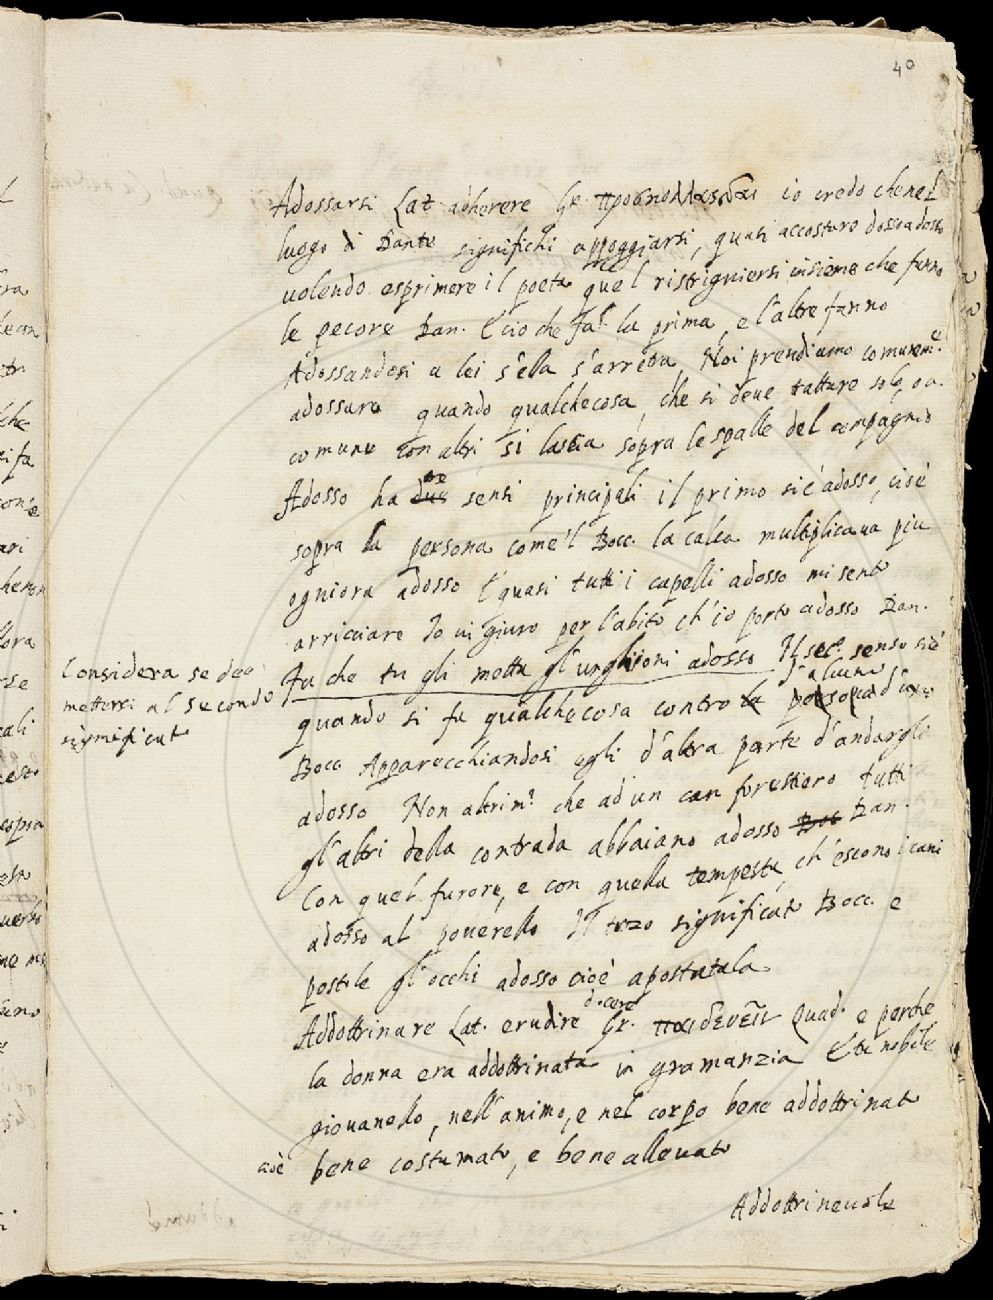 40
Adossarsi Lat. adherere Gr. io credo che nel
luogo di Dante significhi appoggiarsi, quasi accostare dosso a dosso
uolendo esprimere il poeta quel ristrigniersi insieme che fanno
le pecore Dan. E cio che fa la prima, e l'altre fanno
Adossandosi a lei s'ella s'arresta, Noi prendiamo comunem.e
adossare quando qualche cosa, che si deue trattare solo, o a
comune con altri si lascia sopra le spalle del compagnio
Adosso ha due sensi principali il primo si è adosso, cioè
sopra la persona come 'l Bocc. la calca multiplicaua piu
ogniora adosso E quasi tutti i capelli adosso mi sento
arricciare Io ui giuro per l'abito ch'io porto adosso Dan.
Fa che tu gli metta gl'unghioni adosso Il sec.o senso si è
Considera se dee
mettersi al secondo
significato
quando si fa qualche cosa contro la persona d'alcuno
Bocc. Apparecchiandosi egli d'altra parte d'andargli
adosso Non altrim.i che ad un can forestiero tutti
gl'altri della contrada abbaiano adosso Boc Dan.
Con quel furore, e con quella tempesta, ch'escono i cani
adosso al pouerello Il terzo significato Bocc. e
postole gl'occhi adosso cioè apostatala
Addottrinare Lat. erudire docere Gr. παιδευειν Quad. e perche
la donna era addottrinata in gramanzia E tu nobile
giouanello, nell'animo, e nel corpo bene addottrinato
cioè bene costumato, e bene alleuato
Addottrineuole